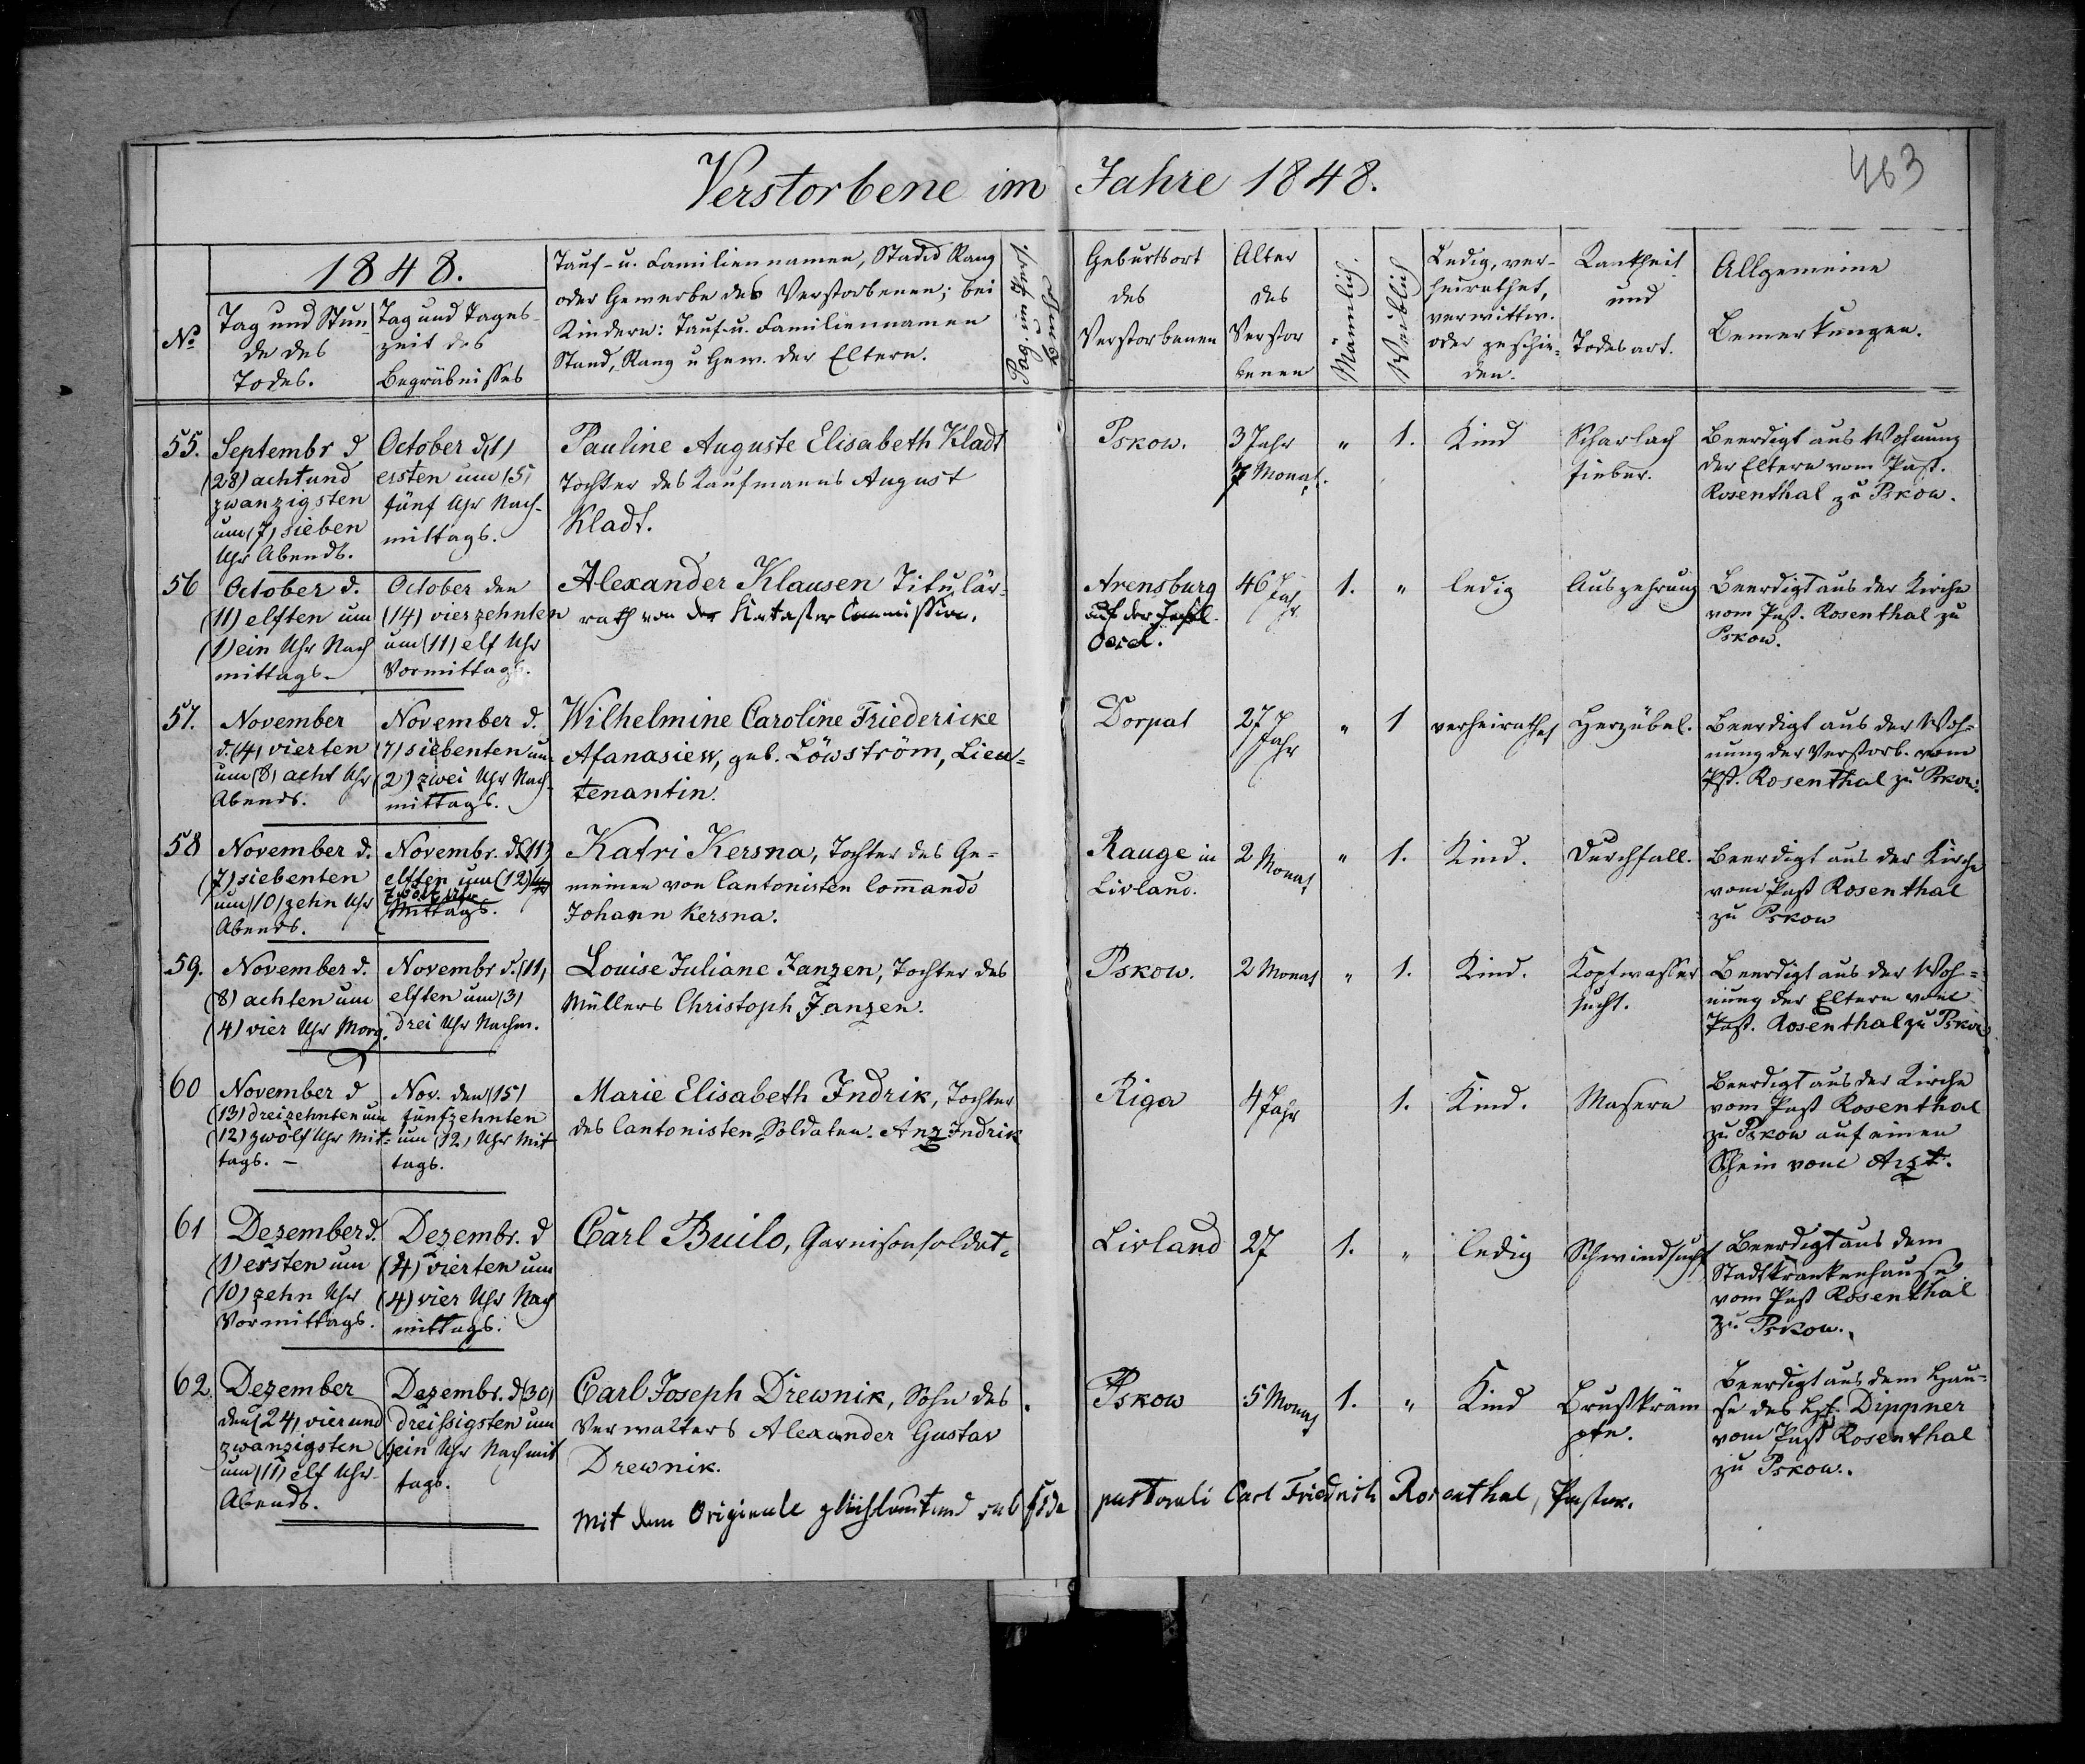 463
Verstorbene im Jahre 1848.
1848.
No
Tag und Stun-
de des
Todes.
Tag und Tages-
zeit des
Begräbnisses
Tauf- u. Familiennamen, Stand Rang
oder Gewerbe des Verstorbenen; bei
Kindern: Tauf- u. Familiennamen
Stand, Rang u Gew. der Eltern.
Geburtsort
des
Verstorbenen
Alter
des
Verstor
benen
Männlich.
Weiblich
Ledig, ver-
heirathet,
verwittw.
oder geschie-
den.
Krankheit
und
Todesart.
Allgemeine
Bemerkungen.
55.
Septembr d
(28) achtund
zwanzigsten
um (7) sieben
Uhr Abends.
October d (1)
ersten um (5)
fünf Uhr Nach-
mittags.
Pauline Auguste Elisabeth Kladt
Tochter des Kaufmanns August
Kladt.
Pskow.
3 Jahr
7 Monat.
"
1.
Kind
Scharlach
fieber.
Beerdigt aus Wohnung
der Eltern vom Past.
Rosenthal zu Pskow.
56
October d.
(11) elften um
(1) ein Uhr Nach
mittags.
October den
(14) vierzehnten
um (11) elf Uhr
Vormittags.
Alexander Klausen Titulär-
rath von der Kataster Commission.
Arensburg
auf der Insel
Oesel.
46 Jahr
1.
"
ledig
Auszehrung
Beerdigt aus der Kirche
vom Past. Rosenthal zu
Pskow.
57.
November
d. (4) vierten
um (8) acht Uhr
Abends.
November d.
(7) siebenten um
(2) zwei Uhr Nach-
mittags.
Wilhelmine Caroline Friedericke
Afanasiew, geb. Löwström, Lieu-
tenantin.
Dorpat
27
Jahr
"
1
verheirathet
Herzübel.
Beerdigt aus der Woh-
nung der Verstorb. vom
Pst. Rosenthal zu Pskow.
58
November d.
(7) siebenten
um (10) zehn Uhr
Abends.
Novembr. d. (11)
elften um (12)
zwölf Uhr
Mittags.
Katri Kersna, Tochter des Ge-
meinen von Cantonisten Com̄ando
Johann Kersna.
Rauge in
Livland.
2 Monat
"
1.
Kind.
Durchfall.
Beerdigt aus der Kirche
vom Past Rosenthal
zu Pskow
59.
November d.
(8) achten um
(4) vier Uhr Morg.
Novembr d. (11)
elften um (3)
drei Uhr Nachm.
Louise Juliane Janzen, Tochter des
Müllers Christoph Janzen.
Pskow.
2 Monat
"
1.
Kind.
Kopfwasser
sucht.
Beerdigt aus der Woh-
nung der Eltern vom
Past. Rosenthal zu Pskow
60
November d
(13) dreizehnten um
(12) zwölf Uhr Mit-
tags. -
Nov. den (15)
fünfzehnten
um (12) Uhr Mit
tags.
Marie Elisabeth Indrik, Tochter
des Cantonisten-Soldaten. Anz Indrik
Riga
4 Jahr
1.
Kind.
Masern
Beerdigt aus der Kirche
vom Past Rosenthal
zu Pskow auf einen
Schein vom Arzt.
61
Dezember d.
(1) ersten um
(10) zehn Uhr
Vormittags.
Dezembr. d
(4) vierten um
(4) vier Uhr Nach
mittags.
Carl Builo, Garnisonsoldat.
Livland
27
1.
"
ledig
Schwindsucht
Beerdigt aus dem
Stadtkrankenhause
vom Past Rosenthal
zu Pskow.
62.
Dezember
den (24) vierund
zwanzigsten
um (11) elf Uhr
Abends.
Dezembr. d (30)
dreissigsten um
(1) ein Uhr Nachmit
tags.
Carl Joseph Drewnik, Sohn des
Verwalters Alexander Gustav
Drewnik.
Pskow
5 Monat
1.
"
Kind
Brustkräm
pfe.
Beerdigt aus dem Hau-
se des Dippner
vom Past Rosenthal
zu Pskow.
Mit dem Originale gleichlautend sub fide pastorali Carl Friedrich Rosenthal, Pastor.